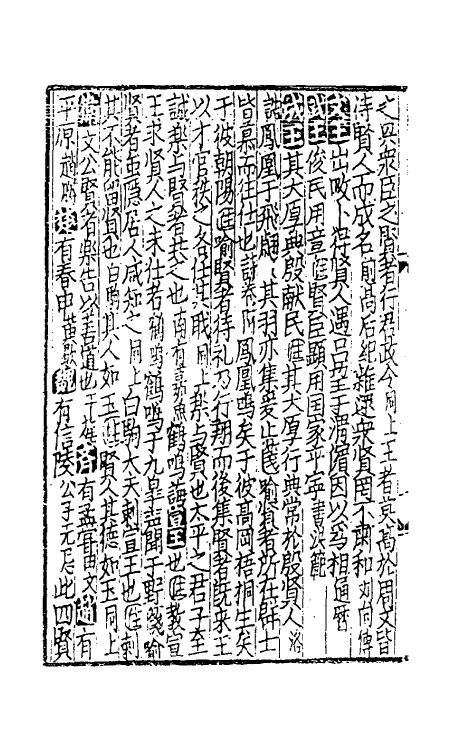 之與衆臣之賢者行君政令同上王者莫髙於周文皆
待賢人而成名前髙后紀雜遝衆賢罔不肅和刘向傳
文王出畋卜得賢人遇吕望于渭濵因以爲相通曆
成王俊民用章注賢臣顯用国家平寜書洪範
成王其大厚典殷献民注其大厚行典常於殷賢人洛
誥鳳凰于飛翽翽其羽亦集爰止箋喻賢者所在群士
皆慕而往仕也詩卷阿鳳凰鳴矣于彼髙岡梧桐生矣
于彼朝陽注喻賢者待礼乃行翔而後集賢者既来王
以才官秩之各任其職同上樂与賢也太平之君子至
誠樂与賢者共之也南有嘉魚鶴鳴誨宣王也注教宣
王求賢人之未仕者鶴鳴鶴鳴于九臯声聞于野箋喻
賢者虽隠居人咸知之同上白駒大夫刺宣王也注刺
其不能留賢也白駒其人如玉注賢人其德如玉同上
衛文公賢者樂告以善道也干旄齊有孟甞田文趙有
平原趙勝楚有春申黄歇魏有信陵公子无忌此四賢